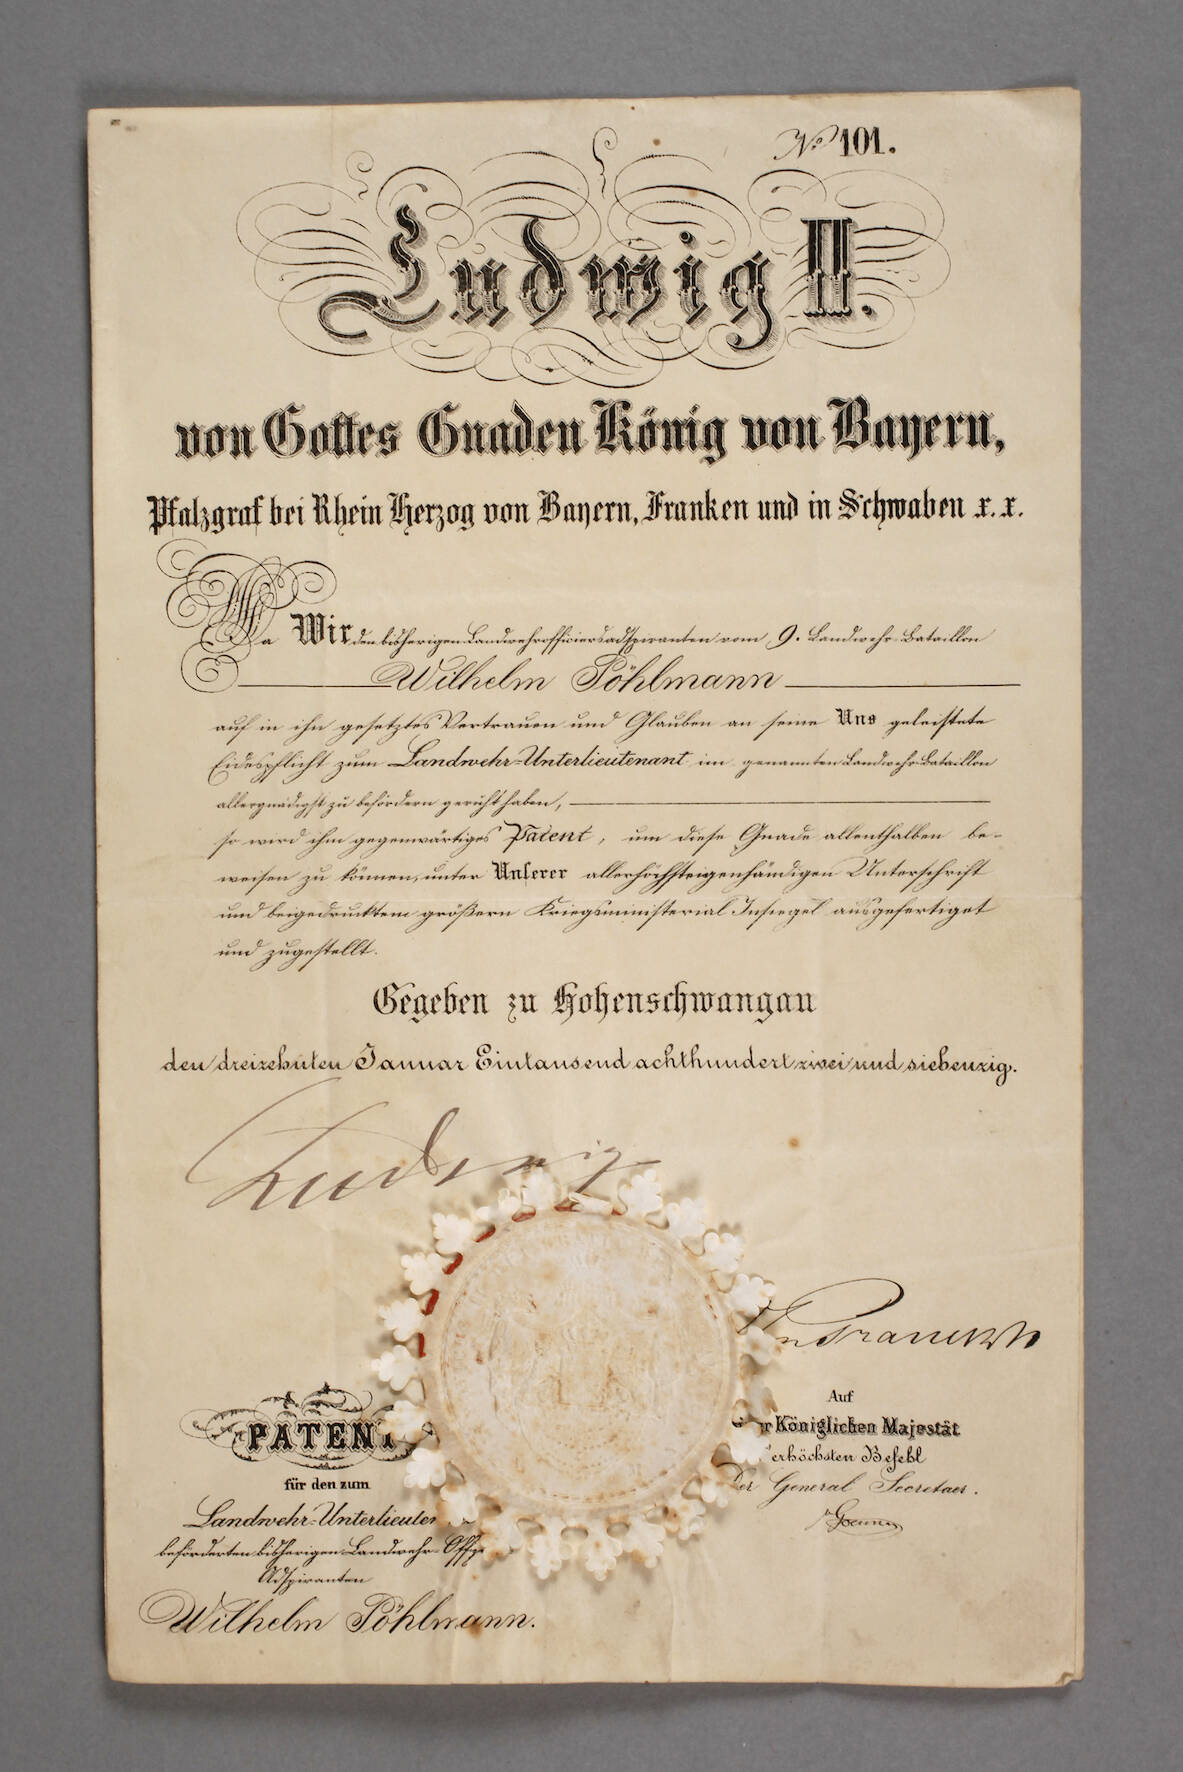 No 101.
Ludwig II.
von Gottes Gnaden König von Bayern,
Pfalzgraf bei Rhein Herzog von Bayern, Franken und in Schwaben x. x.
Da Wir den bisherigen Landwehrofficiersadspiranten vom 9. Landwehr-Bataillon
Wilhelm Pöhlmann
auf in ihn gesetztes Vertrauen und Glauben an seine Uns geleistete
Eidespflicht zum Landwehr-Unterlieutenant im genannten Landwehr-Bataillon
allergnädigst zu befördern geruht haben,
so wird ihm gegenwärtiges Patent, um diese Gnade allenthalben be-
weisen zu können, unter Unserer allerhöchsteigenhändigen Unterschrift
und beigedrucktem größern Kriegsministerial Insiegel ausgefertiget
und zugestellt.
Gegeben zu Hohenschwangau
den dreizehnten Januar Eintausend achthundert zwei und siebenzig.
Ludwig
PATENT
für den zum
Landwehr-Unterlieuten
beförderten bisherigen Landwehr-Offiz
Adspiranten
Wilhelm Pöhlmann.
Auf
er Königlichen Majestät
erhöchsten Befehl
Der General Secretaer.